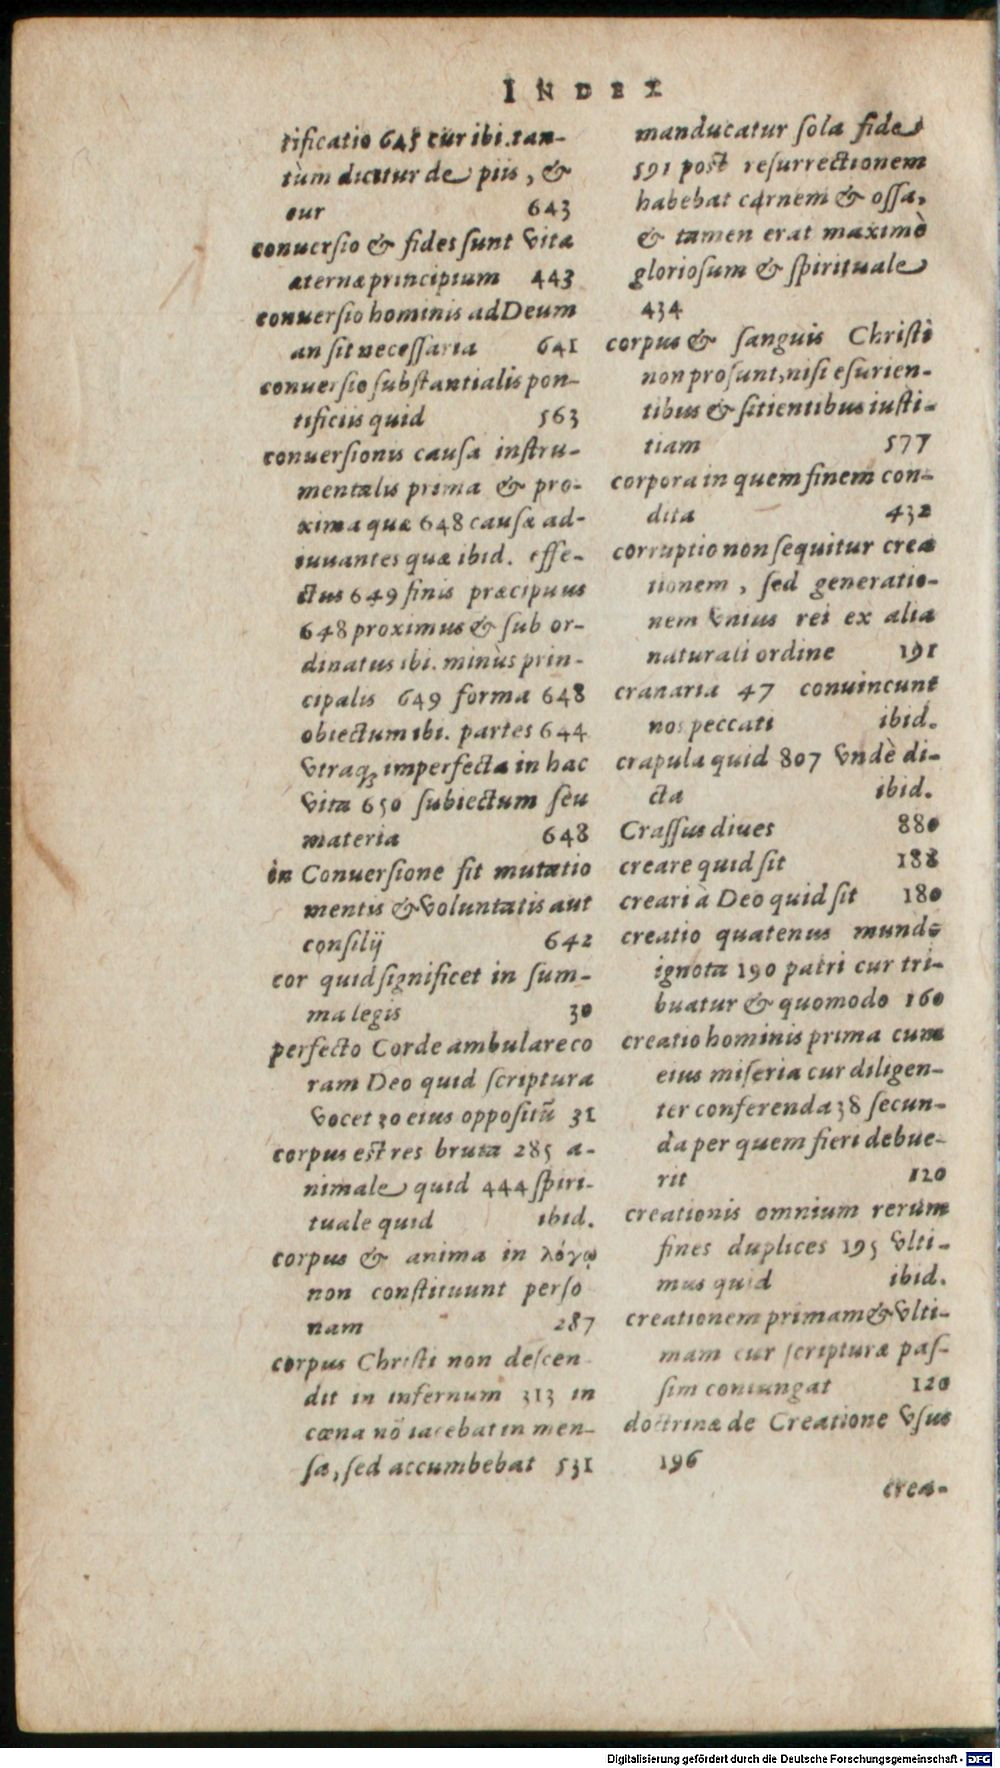 INDEX
tificatio 645 cur ibi. tan-
tùm dicitur de piis, &
cur 643
conuersio & fides sunt vitæ
æternæ principium 443
conuersio hominis ad Deum
an sit necessaria 641
conuersio substantialis pon-
tificiis quid 563
conuersionis causa instru-
mentalis prima & pro-
xima quæ 648 causæ ad-
iuuantes quæ ibid. effe-
ctus 649 finis præcipuus
648 proximus & sub or-
dinatus ibi. minùs prin-
cipalis 649 forma 648
obiectum ibi. partes 644
vtraq; imperfecta in hac
vita 650 subiectum seu
materia 648
in Conuersione fit mutatio
mentis & voluntatis aut
consilij 642
cor quid significet in sum-
ma legis 30
perfecto Corde ambulare co
ram Deo quid scriptura
vocet 30 eius oppositū 31
corpus est res bruta 285 a-
nimale quid 444 spiri-
tuale quid ibid.
corpus & anima in λόγῳ
non constituunt perso
nam 287
corpus Christi non descen
dit in infernum 313 in
cœna nō iacebat in men-
sa, sed accumbebat 531
manducatur sola fide
591 post resurrectionem
habebat carnem & ossa,
& tamen erat maximè
gloriosum & spirituale
434
corpus & sanguis Christi
non prosunt, nisi esurien-
tibus & sitientibus iusti-
tiam 577
corpora in quem finem con-
dita 432
corruptio non sequitur crea
tionem, sed generatio-
nem vnius rei ex alia
naturali ordine 191
cranaria 47 conuincunt
nos peccati ibid.
crapula quid 807 vndè di-
cta ibid.
Crassus diues 880
creare quid sit 188
creari à Deo quid sit 180
creatio quatenus mundo
ignota 190 patri cur tri-
buatur & quomodo 160
creatio hominis prima cum
eius miseria cur diligen-
ter conferenda 38 secun-
da per quem fieri debue-
rit 120
creationis omnium rerum
fines duplices 195 vlti-
mus quid ibid.
creationem primam & vlti-
mam cur scripturæ pas-
sim coniungat 120
doctrinæ de Creatione vsus
196
crea-
Digitalisierung gefördert durch die Deutsche Forschungsgemeinschaft - DFG